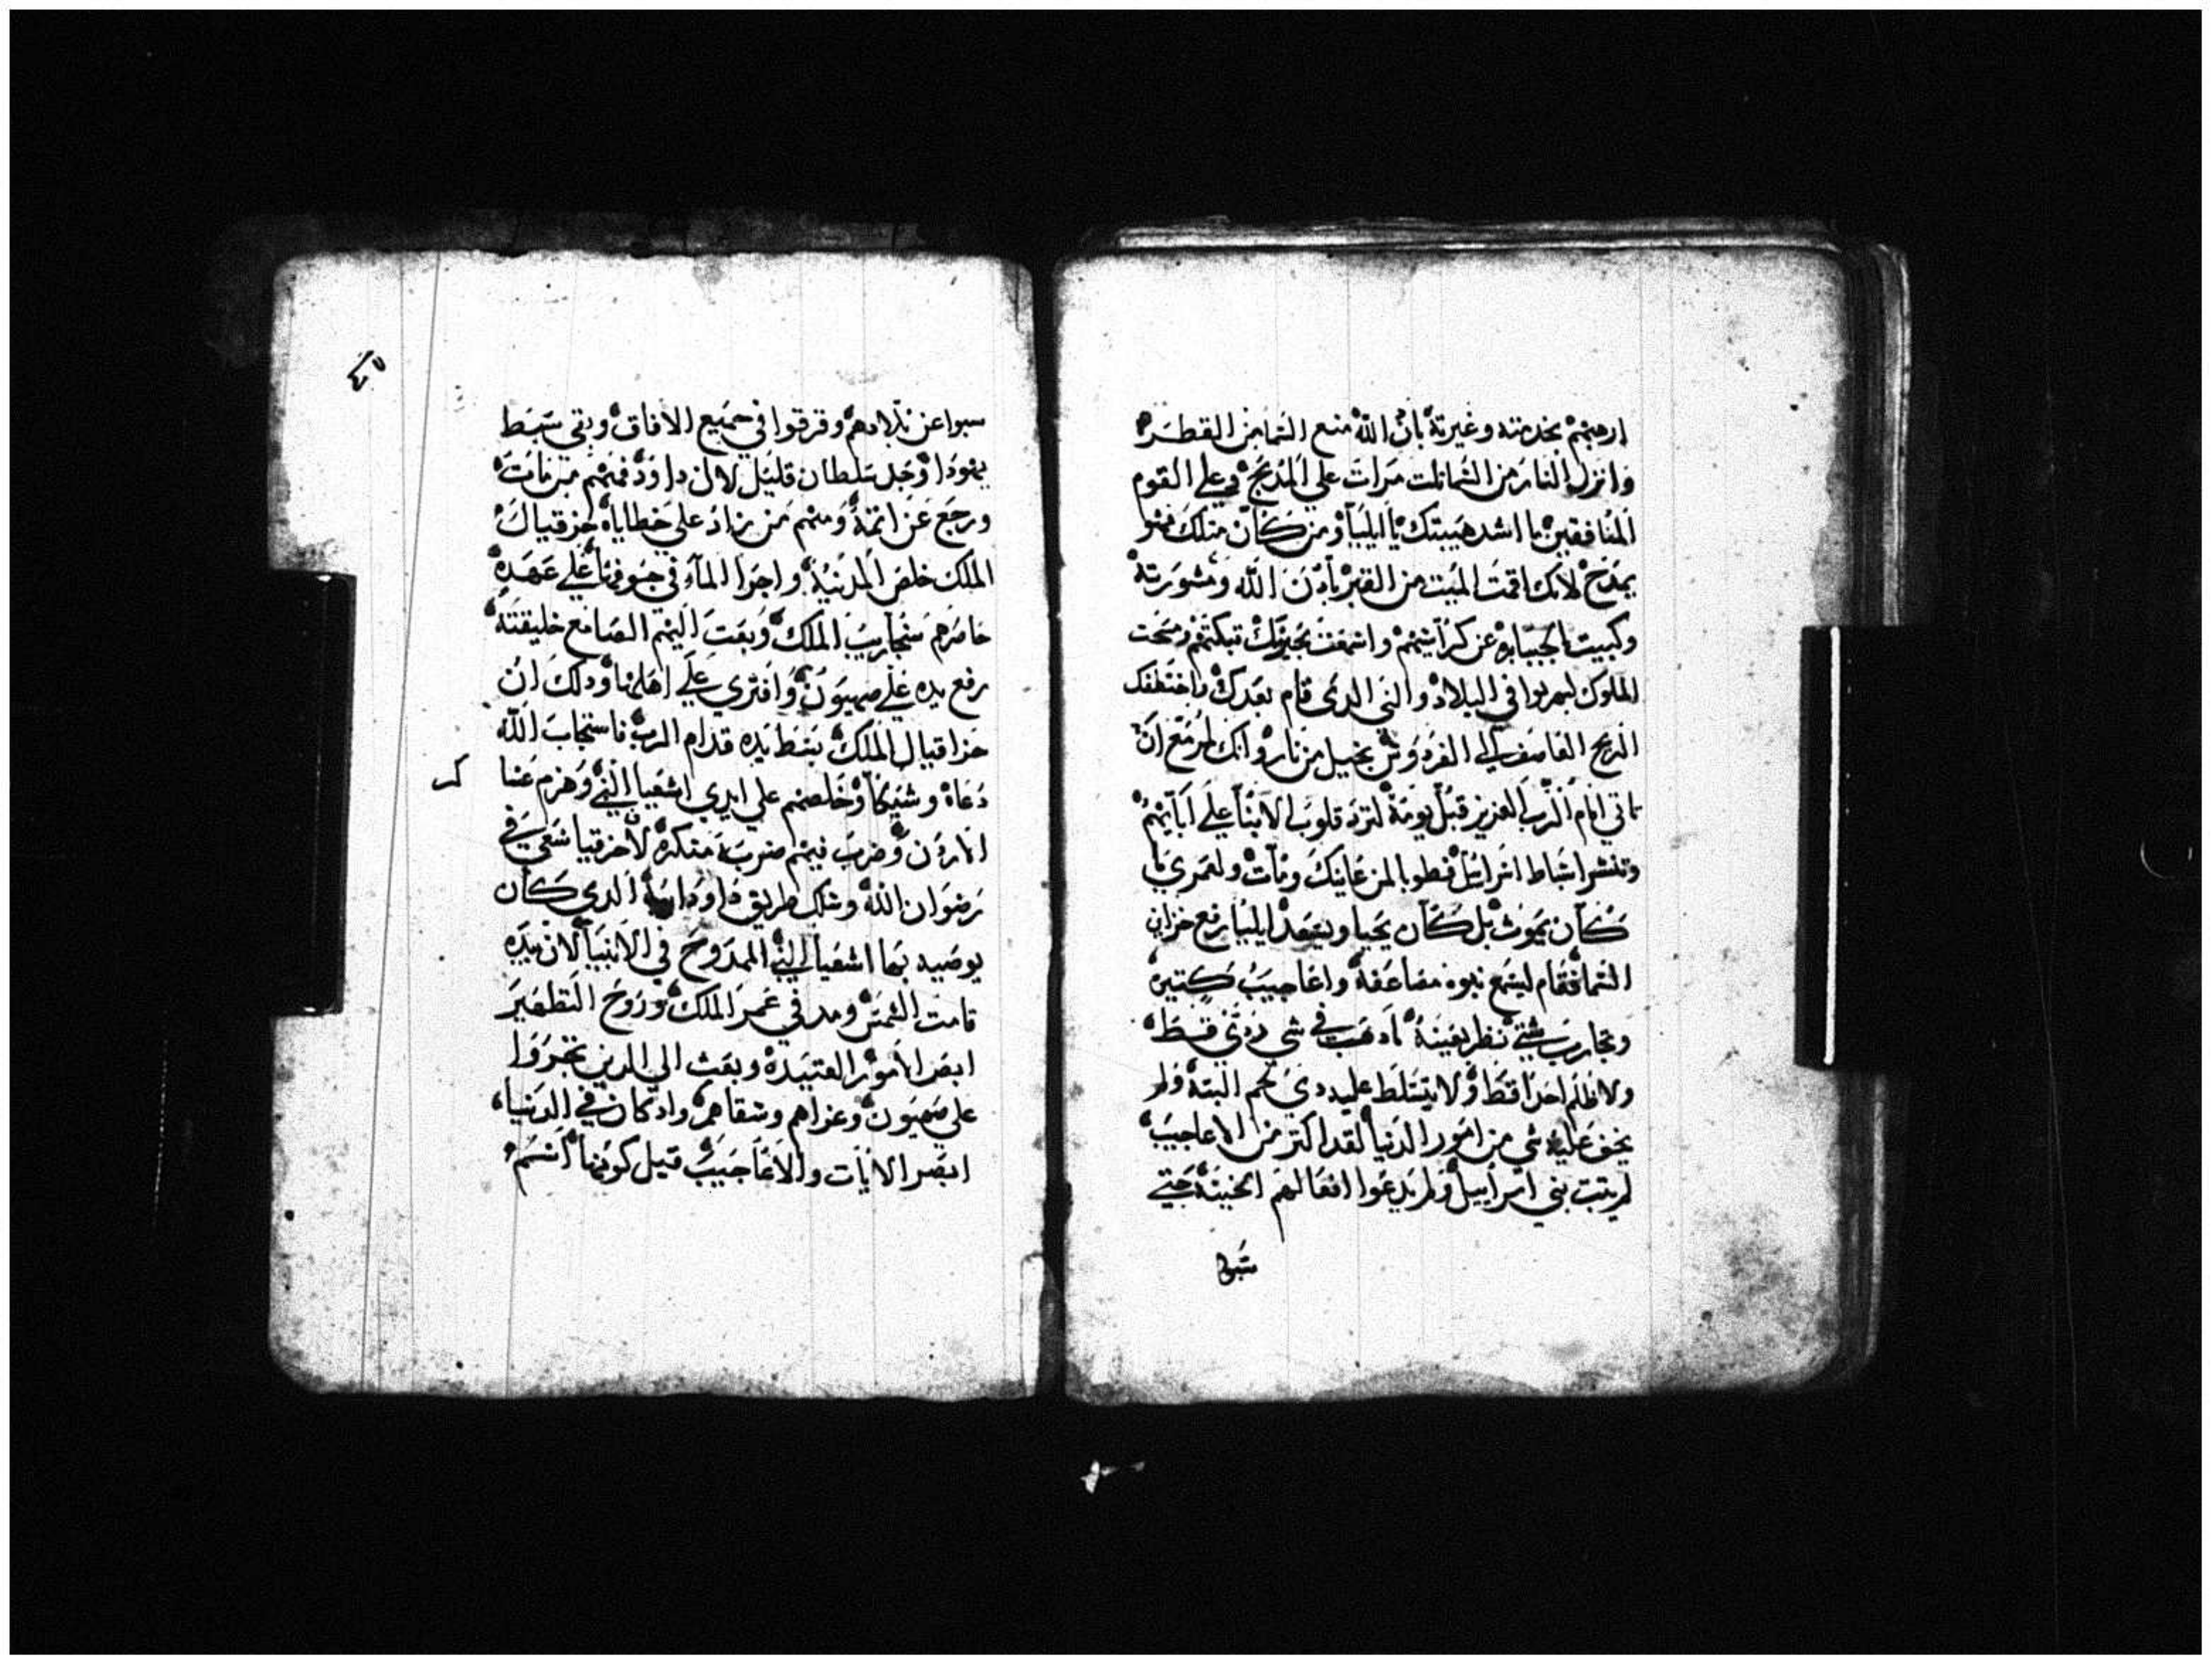 ارهبهم بخدمته وغيرته بان الله منع السما من القطر
وانزل النار من السما تلت مرات علي المدبح وعلي القوم
المنافقين ما اشد هيبتك يا ايليا ومن كان متلك فهو
يمدح لانك اقمت الميت من القبر بادن الله ومشورته
وكبيت الجبابره عن كراسيهم واسمعت تبكتهم ومسحت
الملوك في البلاد والنبي الدي قام بعدك واختطفك
الريح العاصف الي بخيل من نار وانك ان
تاتي امام الرب العزيز قبل يومه لترد قلوب الابنا علي ابايهم
وتنشر اسباط اسراييل فطوبا لمن عاينك ومات ولعمري ما
كان يموت بل كان يحيا وبعد ايليا رفع خزاين
السما فقام ليسع نبوه مضاعفه واعاجيب كتيره
وتجارب شتي نظر بعينه في شي قط
ولا ظلم احدا قط ولا يتسلط عليه دي لحم البته ولم
يخف عليه شي من امور الدنيا لقد اكتر من الاعاجيب
لم يتب بني اسراييل ولم يدعوا افعالهم الخبيته حتي
سبوا
سبوا عن بلادهم وفرقوا في جميع الافاق وبقي سبط
يهودا وجل سلطان قليل لال داوود فمنهم من مات
ورجع عن اتمه ومنهم من زاد علي خطاياه حزقيال
الملك خلص المدينه واجرا الماء في جوفها علي عهده
حاصرهم سنجاريب الملك وبعت اليهم مع خليفته
رفع يده علي صهيون وافتري علي اهلها ودلك ان
حزاقيال الملك بسط يده قدام الرب فاستجاب الله
دعاه وشيكا وخلصهم علي ايدي اشعيا النبي وهزم عنا
وضرب فيهم ضربه منكره لان حزقيا سعي في
رضوان الله وسلك طريق داوود ابيه الدي كان
يوصيه بها اشعيا النبي الممدوح في الانبيا لان بيده
قامت الشمس ومد في عمر الملك وروح التطهير
ابصر الامور العتيده وبعت الي الدين تمرروا
علي صهيون وعزاهم وشفاهم واد كان في الدنيا
ابصر الايات والاعاجيب قبل كونها اسم